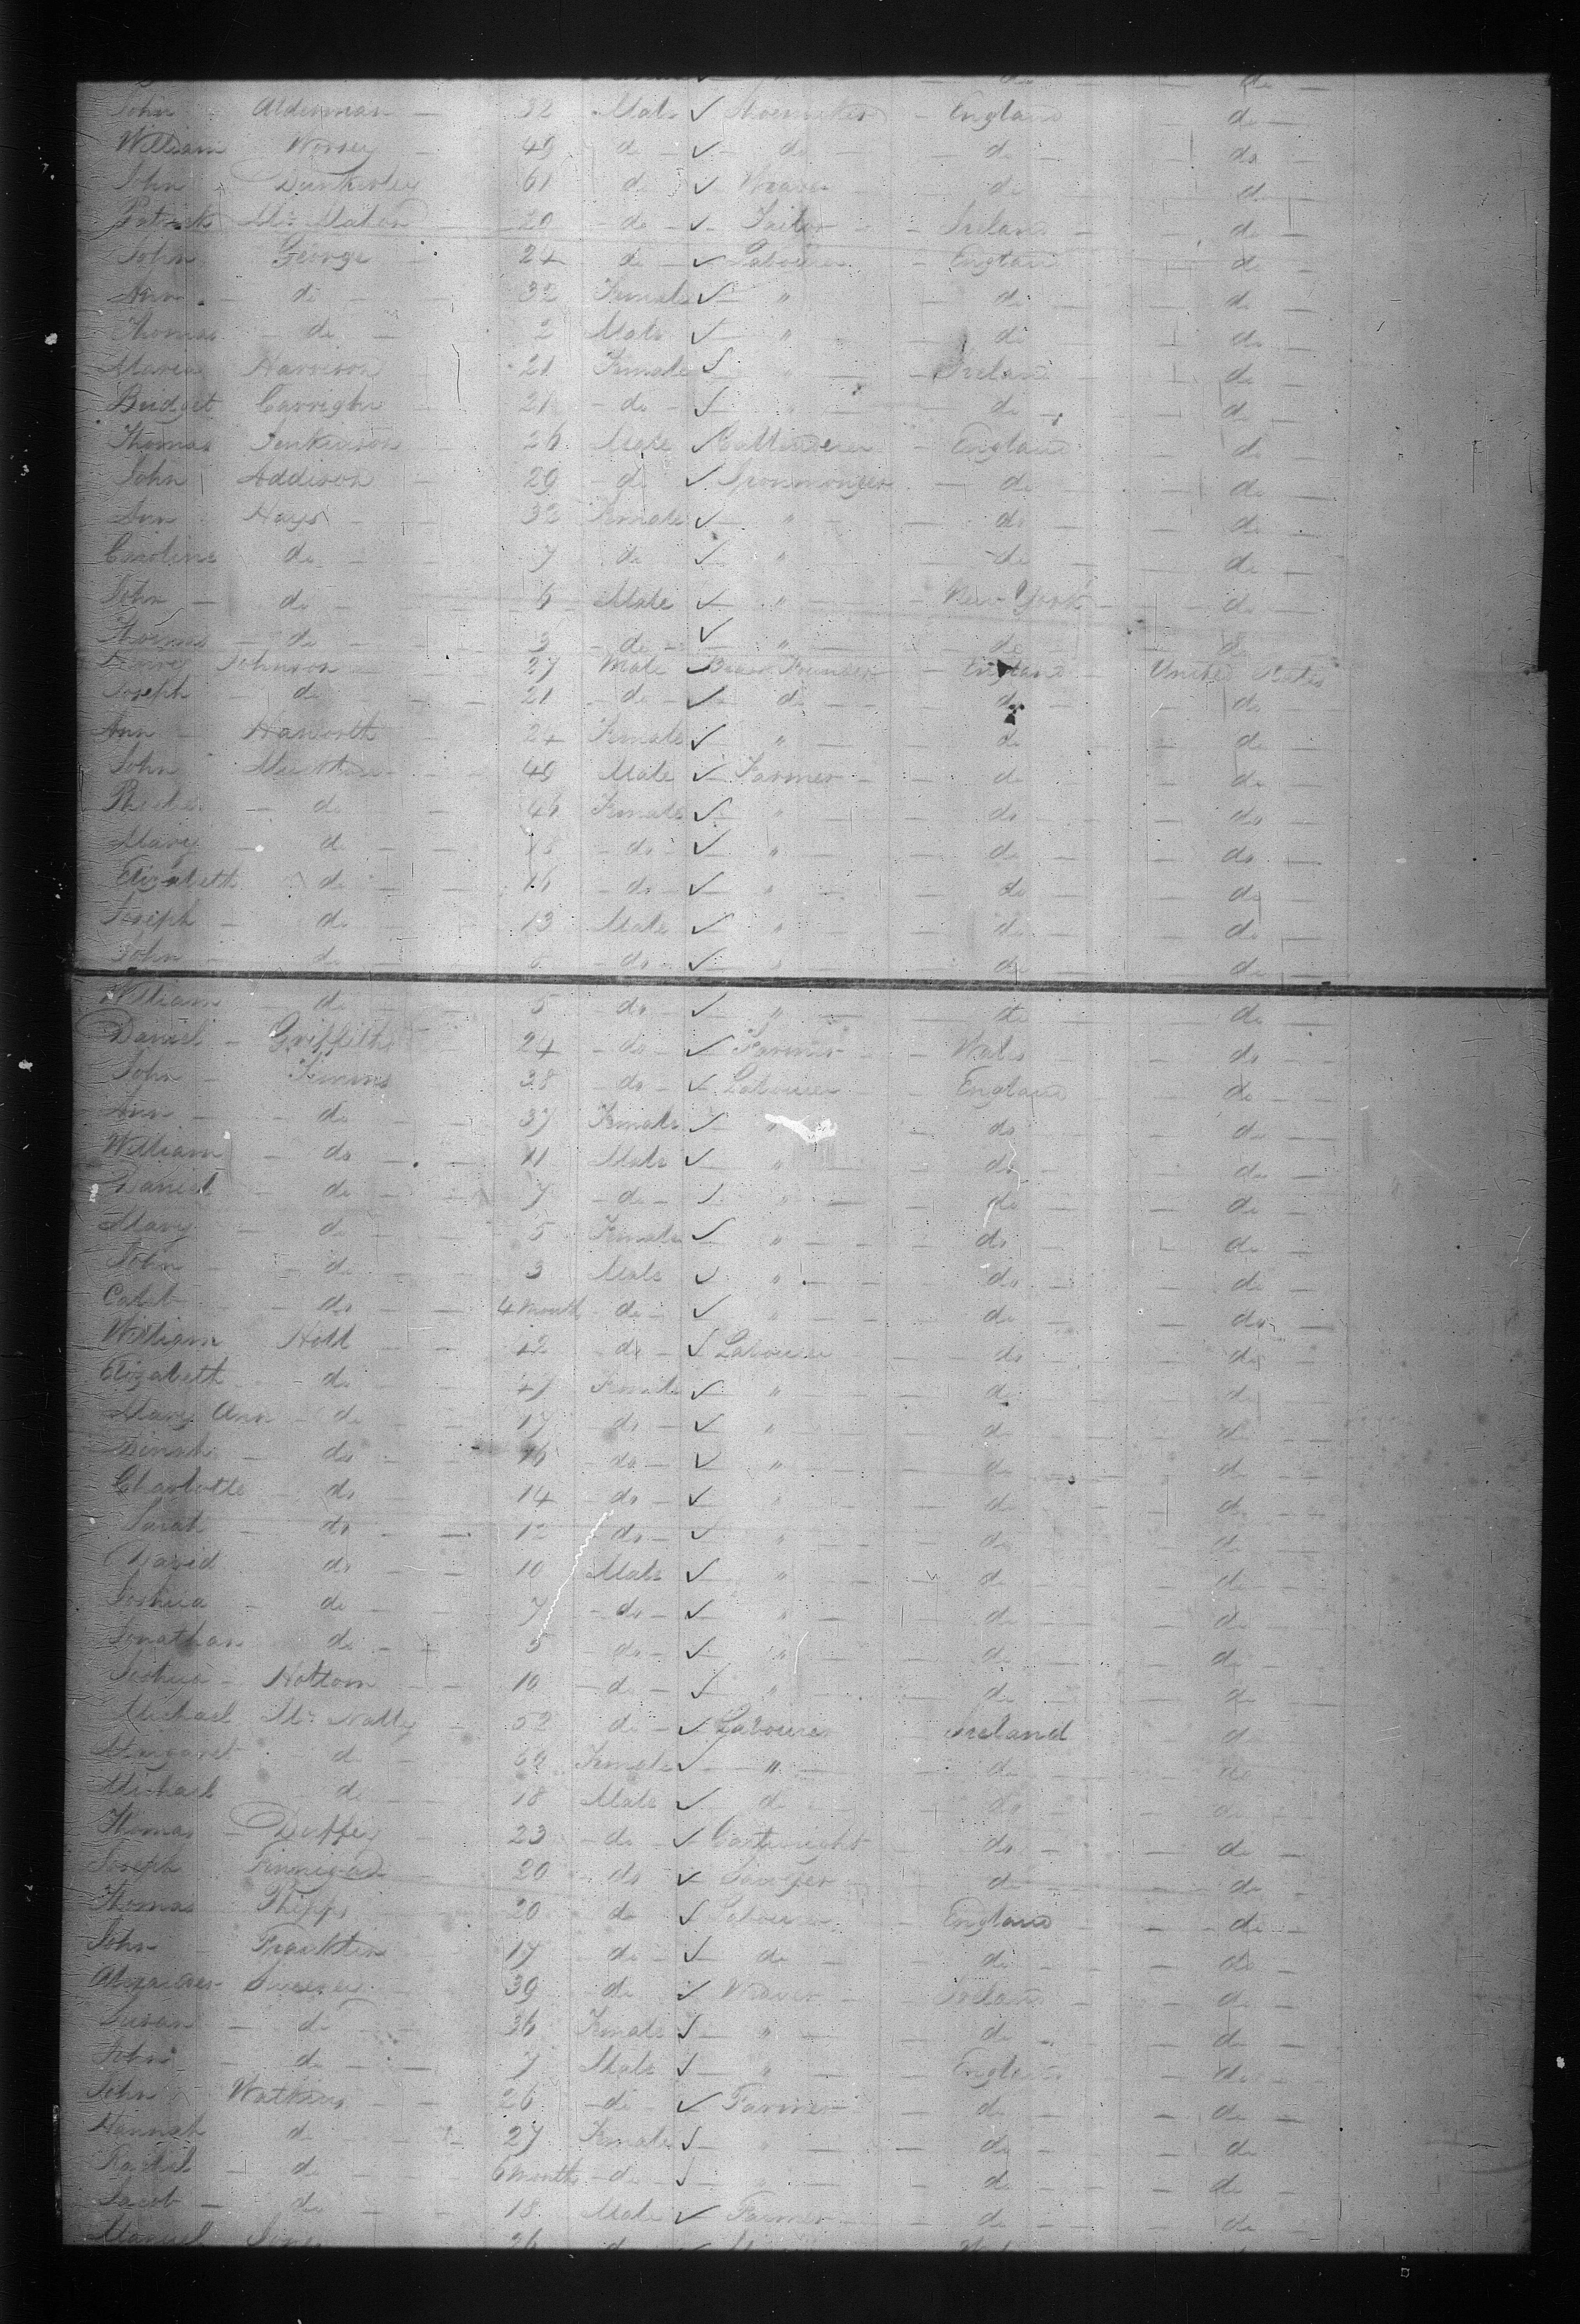 John Alderman — 32 Male ✓ Shoemaker — England — do —
William Worsey — 49 do — ✓ — do — do — do —
John Dunkerley 61 do ✓ Weaver — do — do —
Patrick Mc Mahon 20 — do — ✓ — Tailor — Ireland — do —
John George 24 — do — ✓ Labourer — England — do —
Ann — do — 32 Female ✓ — " — do — do —
Thomas — do — 2 Male ✓ — " — do — do —
Maria Harrison 21 Female ✓ — " — Ireland — do —
21 — do — ✓ — " — do — do —
Thomas Jenkinson 26 Male ✓ — England — do —
John Addison 29 — do ✓ Ironmonger — do — do —
Ann Hays — 32 Female ✓ — " — do — do —
Caroline do — 7 do ✓ — " — do — do —
John — do — 6 Male ✓ — " — New York — do —
Thomas — do — 3 — do — ✓ " — do — do
Johnson — 27 Male ✓ Brass Founder — England — United States
Joseph — do — 21 — do — ✓ — do — do — do —
Ann — Haworth — 24 Female ✓ — " — do — do —
John 49 Male ✓ — Farmer — do — do —
do — 46 Female ✓ — " — do — do —
Mary — do — — do — ✓ " — do — do —
Elizabeth do — 16 — do — ✓ — " — do — do —
Joseph — do — 13 Male ✓ — " — do — do —
John — do — — do — ✓ — " — do — do —
William — do — 5 — do — ✓ — " — do — do —
Daniel — Griffiths 24 — do — ✓ Farmer — Wales — do —
John — Timms 38 — do — ✓ Labourer — England — do —
Ann — do — 37 Female ✓ — " — do — do —
William — do — 11 Male ✓ — " — do — do —
Daniel — do — 7 — do — ✓ " — do — do —
Mary — do — 5 Female ✓ — " — do — do —
John — do — 3 Male ✓ — " — do — do —
Caleb — do — 4 Month — do — ✓ — " — do — do —
William Holl 42 — do — ✓ Labourer — do — do —
Elizabeth — do — 47 Female ✓ — " — do — do —
Mary Ann — do — 17 — do — ✓ — " — do — do —
Dinah — do — 16 — do — ✓ " — do — do —
Charlotte do — 14 — do — ✓ — " — do — do —
Sarah — do — 12 — do — ✓ — " — do — do —
David do — 10 Male ✓ — " — do — do —
Joshua — do — 7 — do — ✓ — " — do — do —
Jonathan do — 5 — do — ✓ — " — do — do —
Hottom — 10 — do — ✓ — " — do — do —
Michael Mc Nally — 52 do — ✓ Labourer — Ireland — do
Margaret — do — Female ✓ — " — do — do
Michael do — 18 Male ✓ — do — do — do —
Thomas — Duffey — 23 — do — ✓ — do — do —
Joseph Finnigad 20 — do ✓ Sawyer — do — do —
Thomas Phipps 20 — do ✓ Labourer — England — do —
John — Franklin 17 — do — ✓ — do — do — do —
39 — do ✓ Weaver — Ireland — do —
Susan — do — 36 Female ✓ — " — do — do —
John — do — 7 Male ✓ — " — England — do —
John Watkins — 26 — do — ✓ Farmer — do — do —
Hannah do — 27 Female ✓ — " — do — do
Rachel — do — 6 Month — do — ✓ — do — do —
Jacob — do — 18 Male ✓ — Farmer — do — do —
26 do ✓